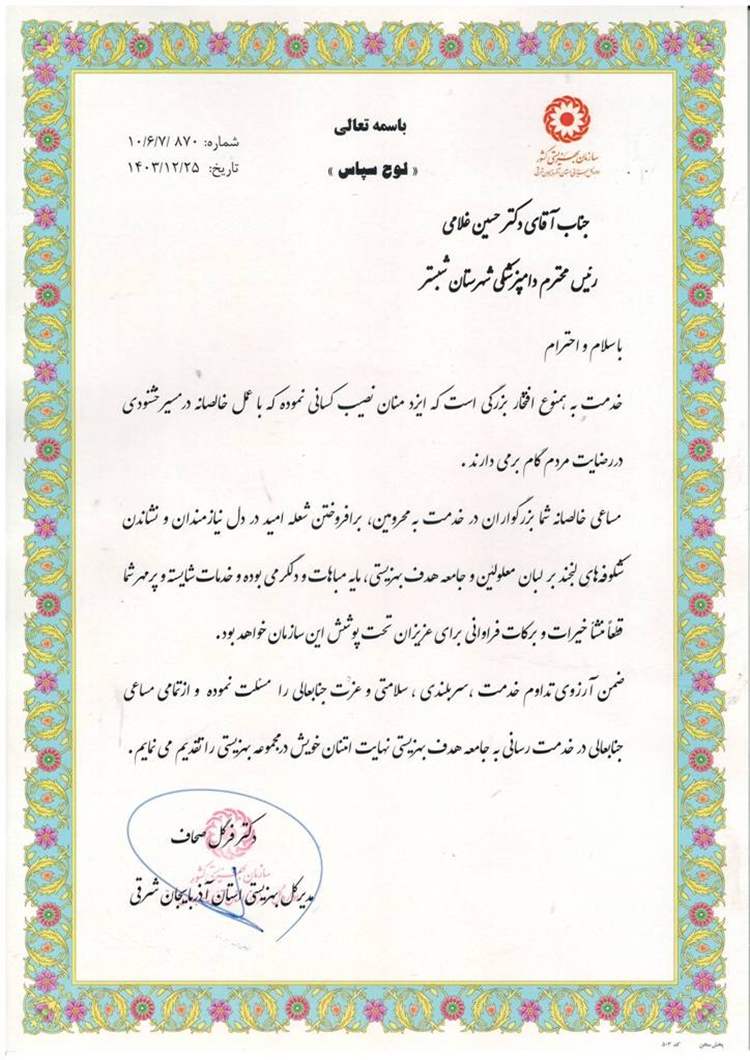 باسمه تعالی
« لوح سپاس »
شماره: ۸۷۰ /۱۰/۶/۷
تاریخ: ۱۴۰۳/۱۲/۲۵
سازمان بهزیستی کشور
جناب آقای دکتر حسین غلامی
رئیس محترم دامپزشکی شهرستان شبستر
باسلام و احترام
خدمت به همنوع افتخار بزرگی است که ایزد منان نصیب کسانی نموده که با عمل خالصانه در مسیر خشنودی
در رضایت مردم گام برمی دارند .
مساعی خالصانه شما بزرگواران در خدمت به محرومین، برافروختن شعله امید در دل نیازمندان و نشاندن
شکوفه های لبخند بر لبان معلولین و جامعه هدف بهزیستی، مایه مباهات و دلگرمی بوده و خدمات شایسته و پرمهر شما
قطعاً منشأ خیرات و برکات فراوانی برای عزیزان تحت پوشش این سازمان خواهد بود.
ضمن آرزوی تداوم خدمت ، سربلندی ، سلامتی و عزت جنابعالی را مسئلت نموده و از تمامی مساعی
جنابعالی در خدمت رسانی به جامعه هدف بهزیستی نهایت امتنان خویش در مجموعه بهزیستی را تقدیم می نمایم .
دکتر فرگل صحاف
سازمان بهزیستی کشور
مدیرکل بهزیستی استان آذربایجان شرقی
پخش سخن کد ۵۰۳